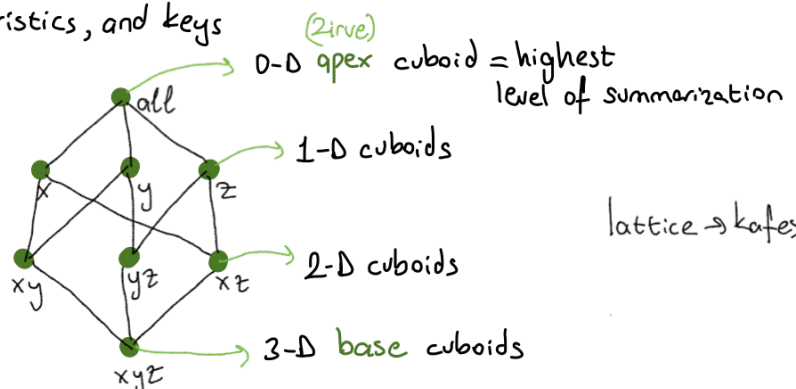 ristics, and keys
(zirve)
0-D apex cuboid = highest
level of summarization
all
1-D cuboids
x y z
lattice → kafes
2-D cuboids
xy yz xz
3-D base cuboids
xyz